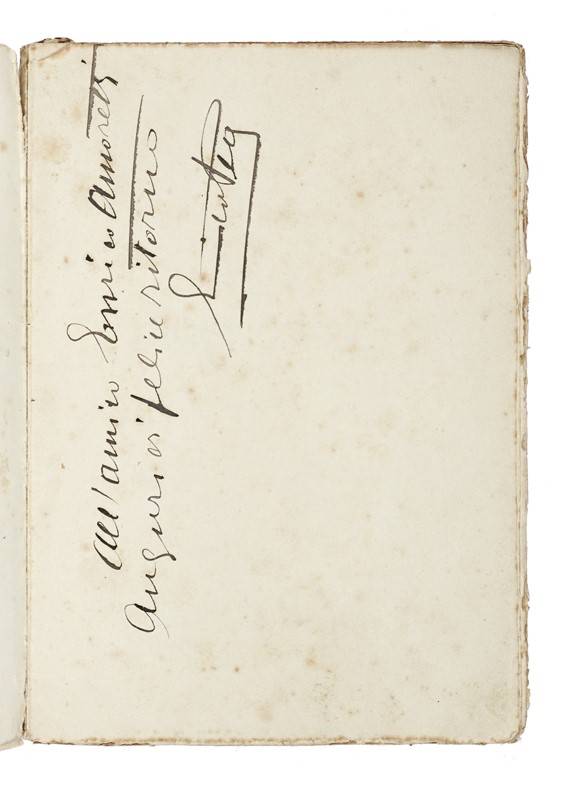 All'amico Enrico Amoretti
Auguri di felice ritorno